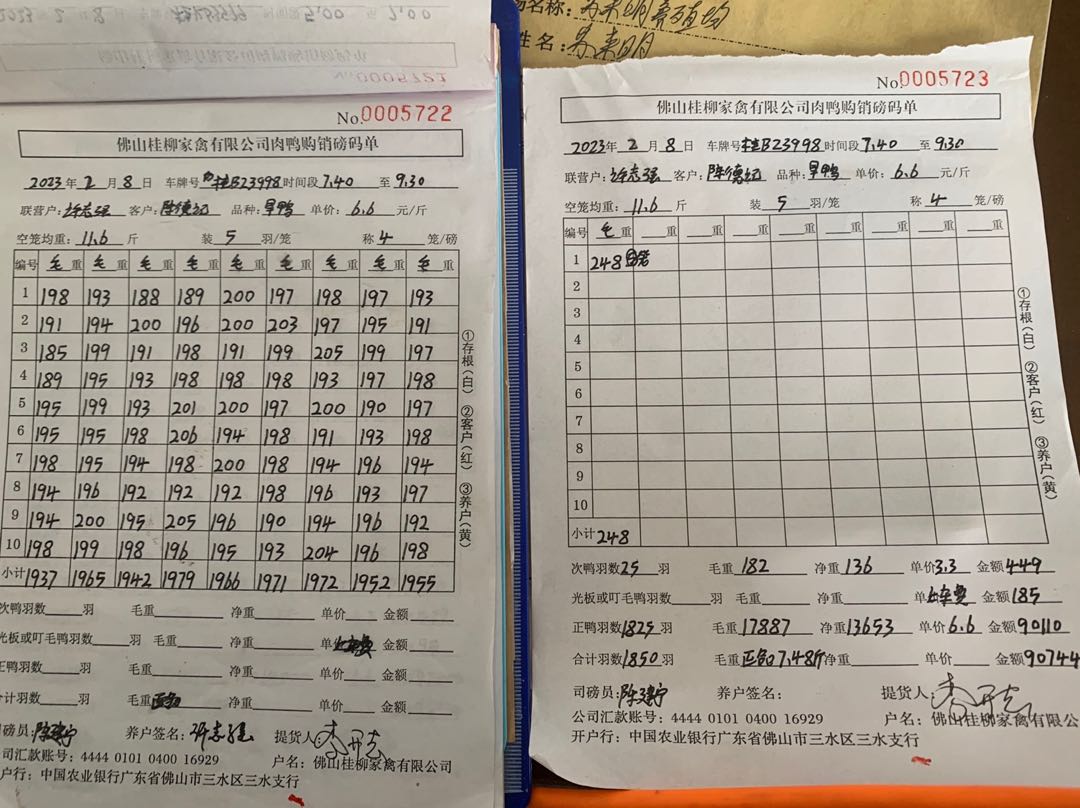 场名称：苏来明养殖场
姓名：苏来明
2023 2 8 5.00 7.00
No.0005721
No.0005722
佛山桂柳家禽有限公司肉鸭购销磅码单
2023年2月8日 车牌号桂B23998时间段7.40至9.30
联营户：许志强 客户：陈德记 品种：旱鸭 单价：6.6元/斤
空笼均重：11.6斤 装5羽/笼 称4笼/磅
编号 毛重 毛重 毛重 毛重 毛重 毛重 毛重 毛重 毛重
1 198 193 188 189 200 197 198 197 193
2 191 194 200 196 200 203 197 195 191
3 185 199 191 198 191 199 205 199 197
4 189 195 193 198 198 198 193 197 198
5 195 199 193 201 200 197 200 190 197
6 195 195 198 206 194 198 191 193 198
7 198 195 194 198 200 198 194 196 194
8 194 196 192 192 192 198 196 193 197
9 194 200 195 205 196 190 194 196 192
10 198 199 198 196 195 193 204 196 198
小计 1937 1965 1942 1979 1966 1971 1972 1952 1955
次鸭羽数 羽 毛重 净重 单价 金额
光板或叮毛鸭羽数 羽 毛重 净重 单 金额
正鸭羽数 羽 毛重 净重 单价 金额
合计羽数 羽 毛重 净重 单价 金额
司磅员： 养户签名： 提货人：
公司汇款账号：4444 0101 0400 16929 户名：佛山桂柳家禽有限公司
开户行：中国农业银行广东省佛山市三水区三水支行
①存根(白) ②客户(红) ③养户(黄)
No.0005723
佛山桂柳家禽有限公司肉鸭购销磅码单
2023年2月8日 车牌号桂B23998时间段7.40至9.30
联营户：许志强 客户：陈德记 品种：旱鸭 单价：6.6元/斤
空笼均重：11.6斤 装5羽/笼 称4笼/磅
编号 毛重 重 重 重 重 重 重 重 重
1 248
2
3
4
5
6
7
8
9
10
小计 248
次鸭羽数25羽 毛重182 净重136 单价3.3 金额449
光板或叮毛鸭羽数 羽 毛重 净重 单 金额185
正鸭羽数1825羽 毛重17887 净重13653 单价6.6 金额90110
合计羽数1850羽 毛重正均7.48斤净重 单价 金额90744
司磅员： 养户签名： 提货人：
公司汇款账号：4444 0101 0400 16929 户名：佛山桂柳家禽有限公
开户行：中国农业银行广东省佛山市三水区三水支行
①存根(白) ②客户(红) ③养户(黄)